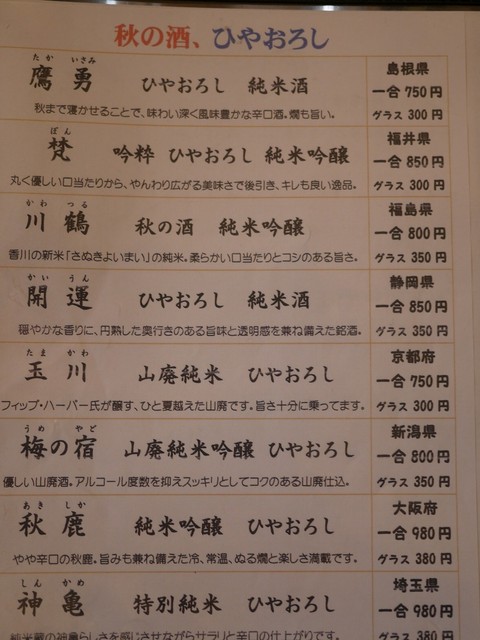 秋の酒、ひやおろし
たか いさみ
鷹勇 ひやおろし 純米酒
島根県
一合 750円
秋まで寝かせることで、味わい深く風味豊かな辛口酒。燗も旨い。
グラス 300円
ぼん
梵 吟粋 ひやおろし 純米吟醸
福井県
一合 850円
丸く優しい口当たりから、やんわり広がる美味さで後引き、キレも良い逸品。
グラス 300円
かわ つる
川鶴 秋の酒 純米吟醸
福島県
一合 800円
香川の新米「さぬきよいまい」の純米。柔らかい口当たりとコシのある旨さ。
グラス 350円
かい うん
開運 ひやおろし 純米酒
静岡県
一合 850円
穏やかな香りに、円熟した奥行きのある旨味と透明感を兼ね備えた銘酒。
グラス 350円
たま かわ
玉川 山廃純米 ひやおろし
京都府
一合 750円
フィップ・ハーバー氏が醸す、ひと夏越えた山廃です。旨さ十分に乗ってます。
グラス 300円
うめ やど
梅の宿 山廃純米吟醸 ひやおろし
新潟県
一合 800円
優しい山廃酒。アルコール度数を抑えスッキリとしてコクのある山廃仕込。
グラス 350円
あき しか
秋鹿 純米吟醸 ひやおろし
大阪府
一合 980円
やや辛口の秋鹿。旨みも兼ね備えた冷、常温、ぬる燗と楽しさ満載です。
グラス 380円
しん かめ
神亀 特別純米 ひやおろし
埼玉県
一合 980円
純米蔵の神亀らしさを感じさせながらサラリと辛口の仕上がりです。
グラス 380円